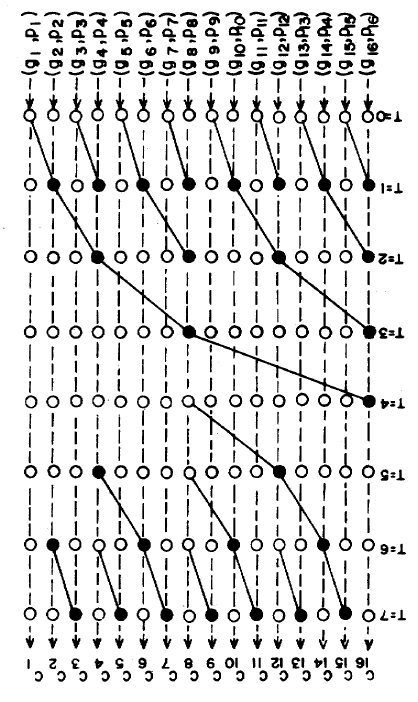 (g1,P1) (g2,P2) (g3,P3) (g4,P4) (g5,P5) (g6,P6) (g7,P7) (g8,P8) (g9,P9) (g10,P10) (g11,P11) (g12,P12) (g13,P13) (g14,P14) (g15,P15) (g16,P16)
T=0
T=1
T=2
T=3
T=4
T=5
T=6
T=7
C1 C2 C3 C4 C5 C6 C7 C8 C9 C10 C11 C12 C13 C14 C15 C16